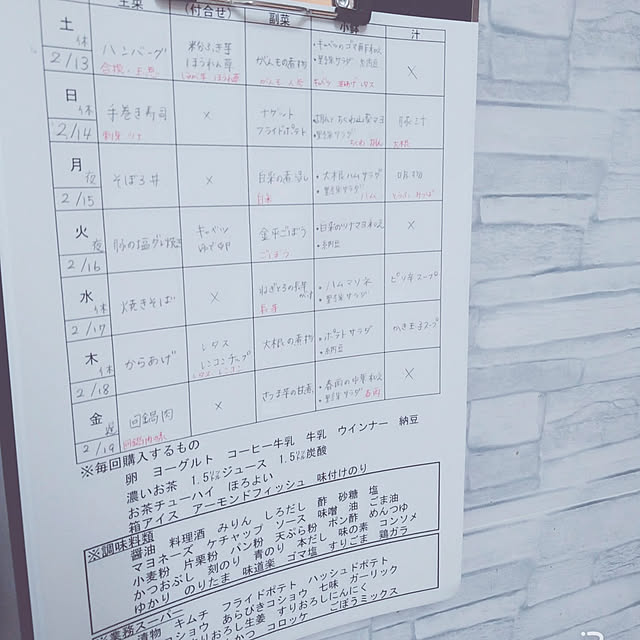 主菜 (付合せ) 副菜 小鉢 汁
土 休 2/13 ハンバーグ 粉ふき芋 ほうれん草 がんもの煮物 ・野菜サラダ ×
日 休 2/14 手巻き寿司 × ナゲット フライドポテト ・野菜サラダ 豚汁
刺身 ツナ 大根
月 夜 2/15 そぼろ丼 × 白菜の煮浸し ・大根ハムサラダ ・野菜サラダ
白菜 ハム
火 夜 2/16 豚の塩ダレ焼き キャベツ ゆで卵 金平ごぼう ・白菜のツナマヨ和え ・納豆 ×
ごぼう
水 休 2/17 焼きそば × ・ハムマリネ ・野菜サラダ ピリ辛スープ
長芋
木 休 2/18 からあげ レタス 大根の煮物 ・ポテトサラダ ・納豆 かき玉スープ
金 遅 2/19 回鍋肉 × さつま芋の甘煮 ・春雨の中華和え ・野菜サラダ ×
回鍋肉の素 春雨
※毎回購入するもの
卵 ヨーグルト コーヒー牛乳 牛乳 ウインナー 納豆
濃いお茶 1.5㍑ジュース 1.5㍑炭酸
お茶チューハイ ほろよい
箱アイス アーモンドフィッシュ 味付けのり
※調味料類
醤油 料理酒 みりん しろだし 酢 砂糖 塩
マヨネーズ ケチャップ ソース 味噌 油 ごま油
小麦粉 片栗粉 パン粉 天ぷら粉 ポン酢 めんつゆ
かつおぶし 刻のり 青のり 本だし 味の素 コンソメ
ゆかり のりたま 味道楽 ゴマ塩 すりごま 鶏ガラ
※業務スーパー
漬物 キムチ フライドポテト ハッシュドポテト
コショウ あらびきコショウ 七味 ガーリック
すりおろし生姜 すりおろしにんにく
かつ コロッケ ごぼうミックス